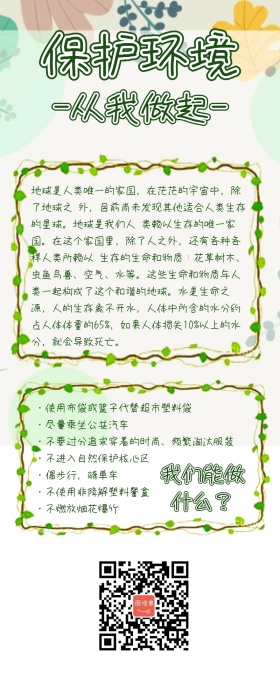 保护环境
-从我做起-
地球是人类唯一的家园，在茫茫的宇宙中，除
了地球之 外，目前尚未发现其他适合人类生存
的星球。地球是我们人 类赖以生存的唯一家
园。在这个家园里，除了人之外，还有各种各
样人类所赖以 生存的生命和物质：花草树木、
虫鱼鸟兽、空气、水等。这些生命和物质与人
类一起构成了这个和谐的地球。水是生命之
源，人的生存离不开水，人体中所含的水分约
占人体体重的65%，如果人体损失10%以上的水
分，就会导致死亡。
·使用布袋或篮子代替超市塑料袋
·尽量乘坐公共汽车
·不要过分追求穿着的时尚、频繁淘汰服装
·不进入自然保护核心区
·偶步行，骑单车
·不使用非降解塑料餐盒
·不燃放烟花爆竹
我们能做
什么？
图怪兽